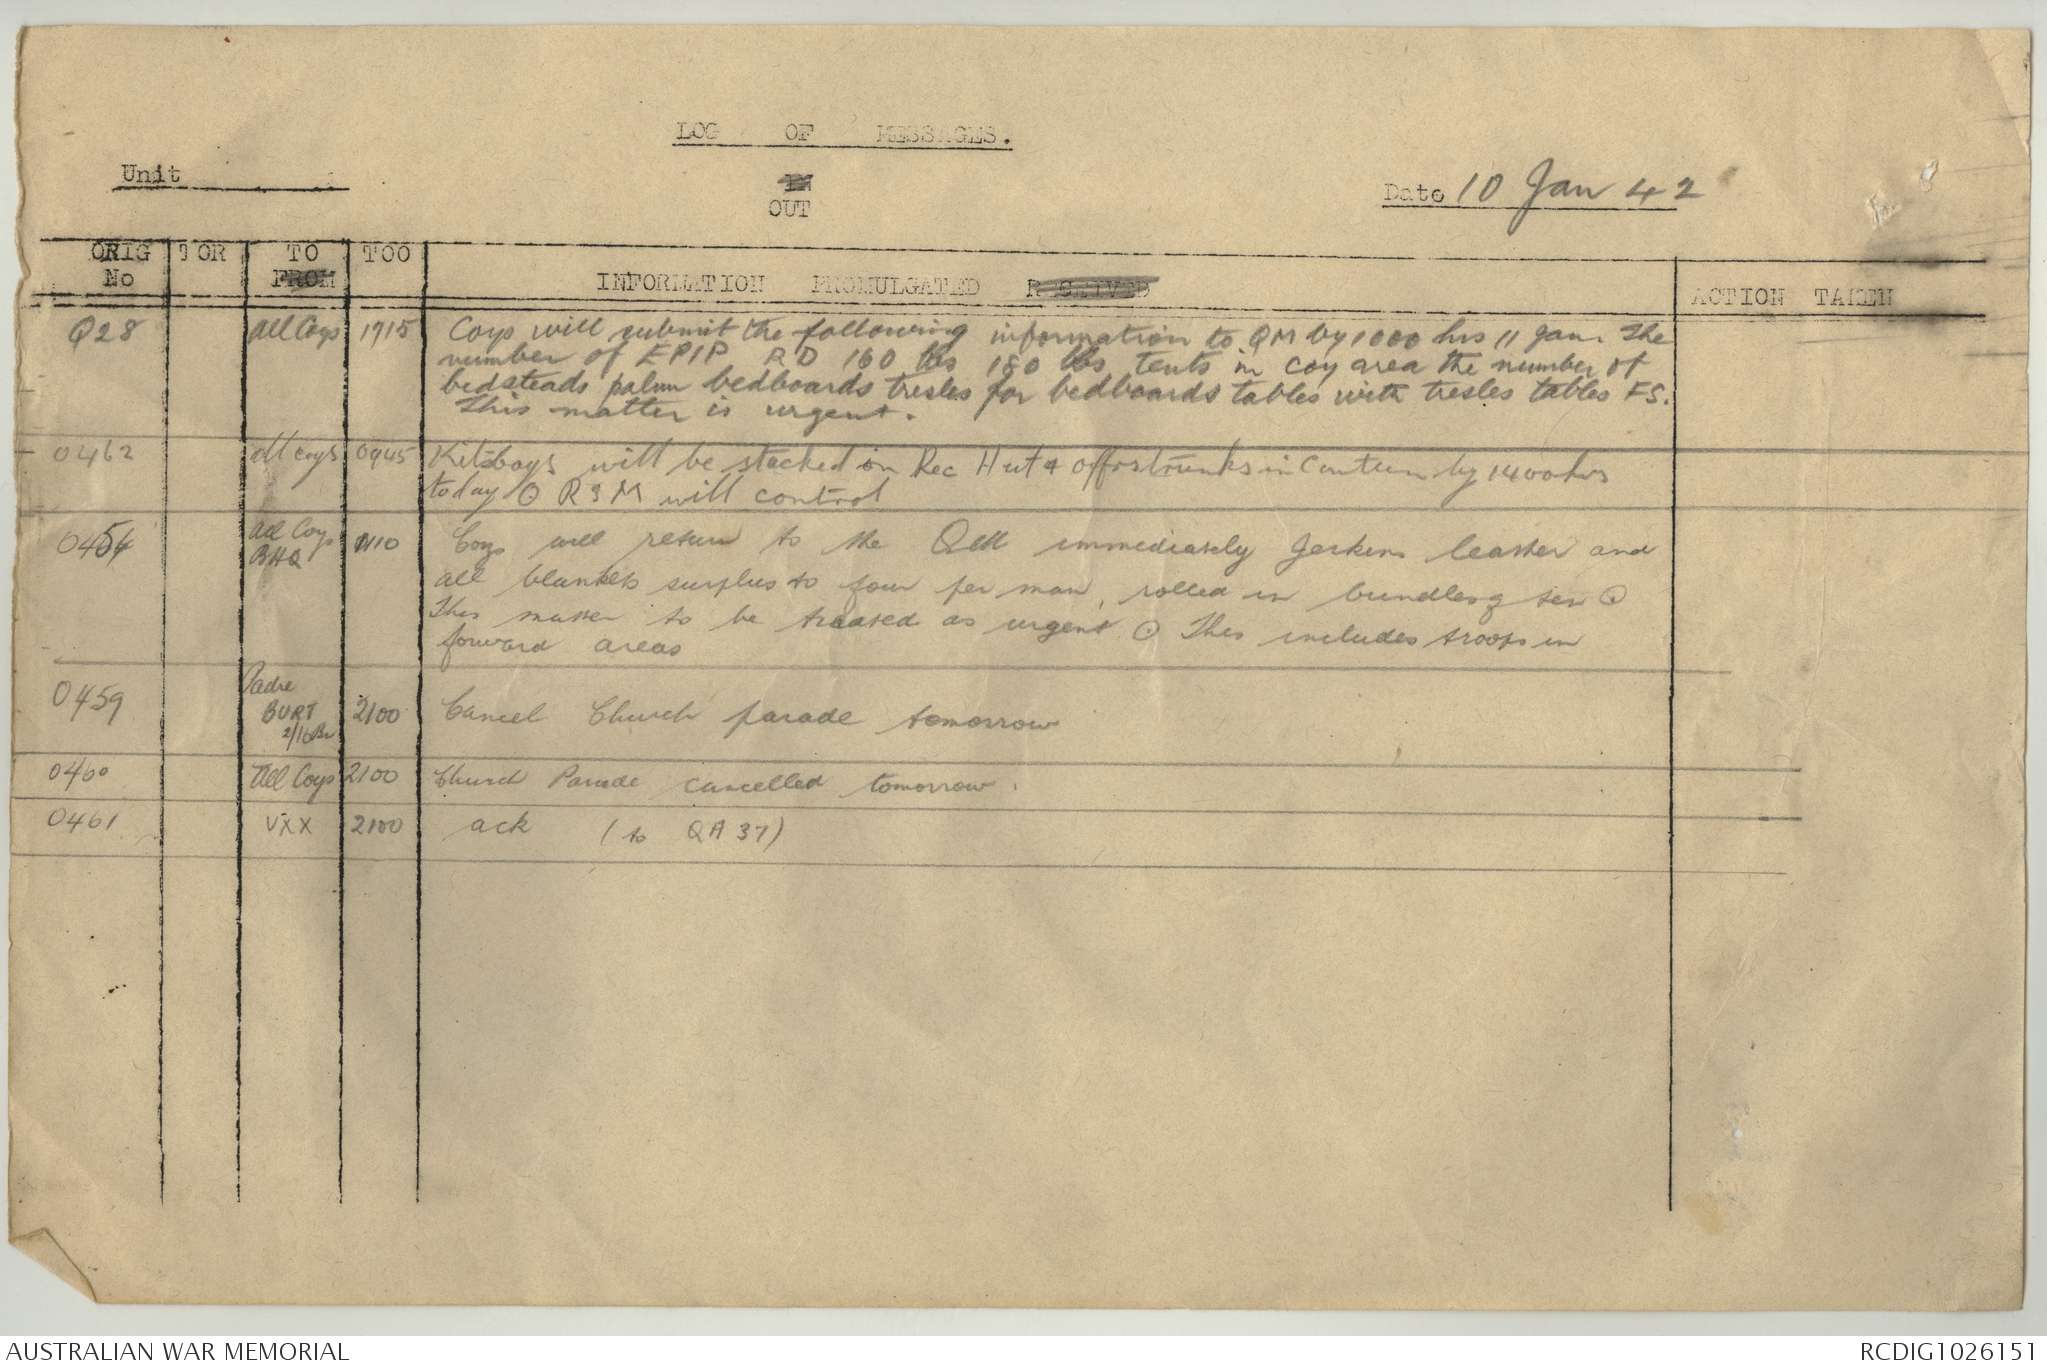 LOG OF MESSAGES.
Unit
IN
OUT
Date 10 Jan 42
ORIG No TOR TO FROM TOO INFORMATION PROMULGATED RECEIVED ACTION TAKEN
Q28 All Coys 1715 Coys will submit the following information to QM by 1000 hrs 11 Jan. The
number of EPIP RD 160 lbs 180 lbs tents in coy area the number of
bedsteads palm bedboards tresles for bedboards tables with tresles tables FS.
This matter is urgent.
0462 All coys 0945 Kitbags will be stacked in Rec Hut & offrs trunks in Canteen by 1400 hrs
today ⊙ RSM will control
0454 All Coys BHQ 1110 Coys will return to the QM immediately Jerkins leather and
all blankets surplus to four per man, rolled in bundles of ten ⊙
This matter to be treated as urgent ⊙ This includes troops in
forward areas
0459 Padre BURT 2/16 Bn 2100 Cancel Church parade tomorrow
0460 All Coys 2100 Church Parade cancelled tomorrow.
0461 VXX 2100 ack (to QA 37)
AUSTRALIAN WAR MEMORIAL
RCDIG1026151